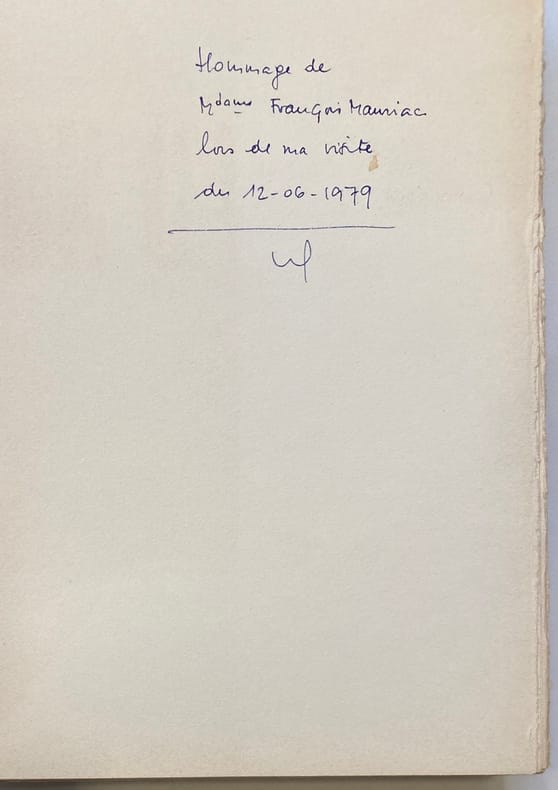 Hommage de
Mdame François Mauriac
lors de ma visite
du 12-06-1979